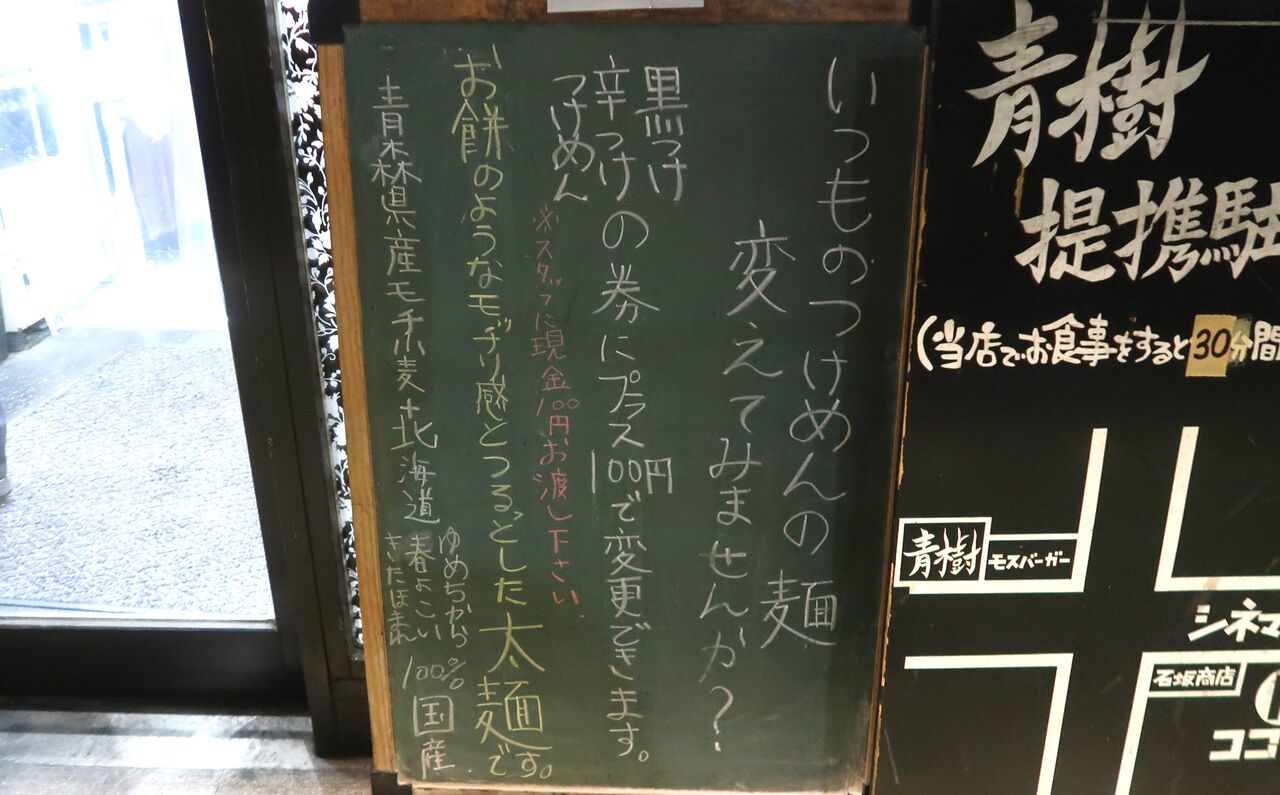 いつものつけめんの麺
変えてみませんか？
黒つけ
辛つけ
つけめん
の券にプラス100円で変更できます。
※スタッフに現金100円お渡し下さい。
お餅のようなモッチリ感とつるっとした太麺です。
青森県産モチ小麦+北海道
ゆめちから
春よこい
きたほまれ
100%国産
青樹
提携駐
(当店でお食事をすると30分間
青樹
モスバーガー
シネマ
石坂商店
ココ